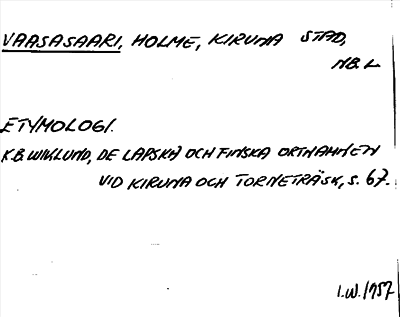 VAASASAARI, HOLME, KIRUNA STAD,
NB. L
ETYMOLOGI.
K.B. WIKLUND, DE LAPSKA OCH FINSKA ORTNAMNEN
VID KIRUNA OCH TORNETRÄSK, S. 67.
I.W. 1957